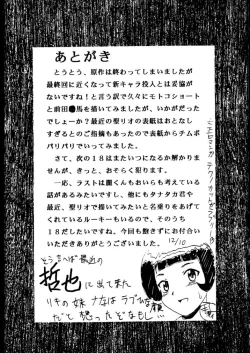 あとがき
とうとう、原作は終わってしまいましたが
最終回に近くなって新キャラ投入とは妥協が
ないですね!と言う訳で久々にモトコショート
と前田●馬を描いてみましたが、いかがだった
でしょーか?最近の聖リオの表紙はおとなし
すぎるとのご指摘もあったので表紙からチムポ
バリバリでいってみました。
さて、次の18はまたいつになるか解かりま
せんが、きっと、おそらく犯ります。
一応、ラストは闇くんもおいらも考えている
話があるみたいですが、他にもナタタカ君や
最近、聖リオで描いてみたいと名乗りをあげて
くれているルーキーもいるので、そのうち
18だしたいですね。今回も飽きずにお付合い
いただきありがとうございました。
12/10
そう言へば最近の
哲也に出て来た
リキの妹 ナナは
だと想ったぞなもし